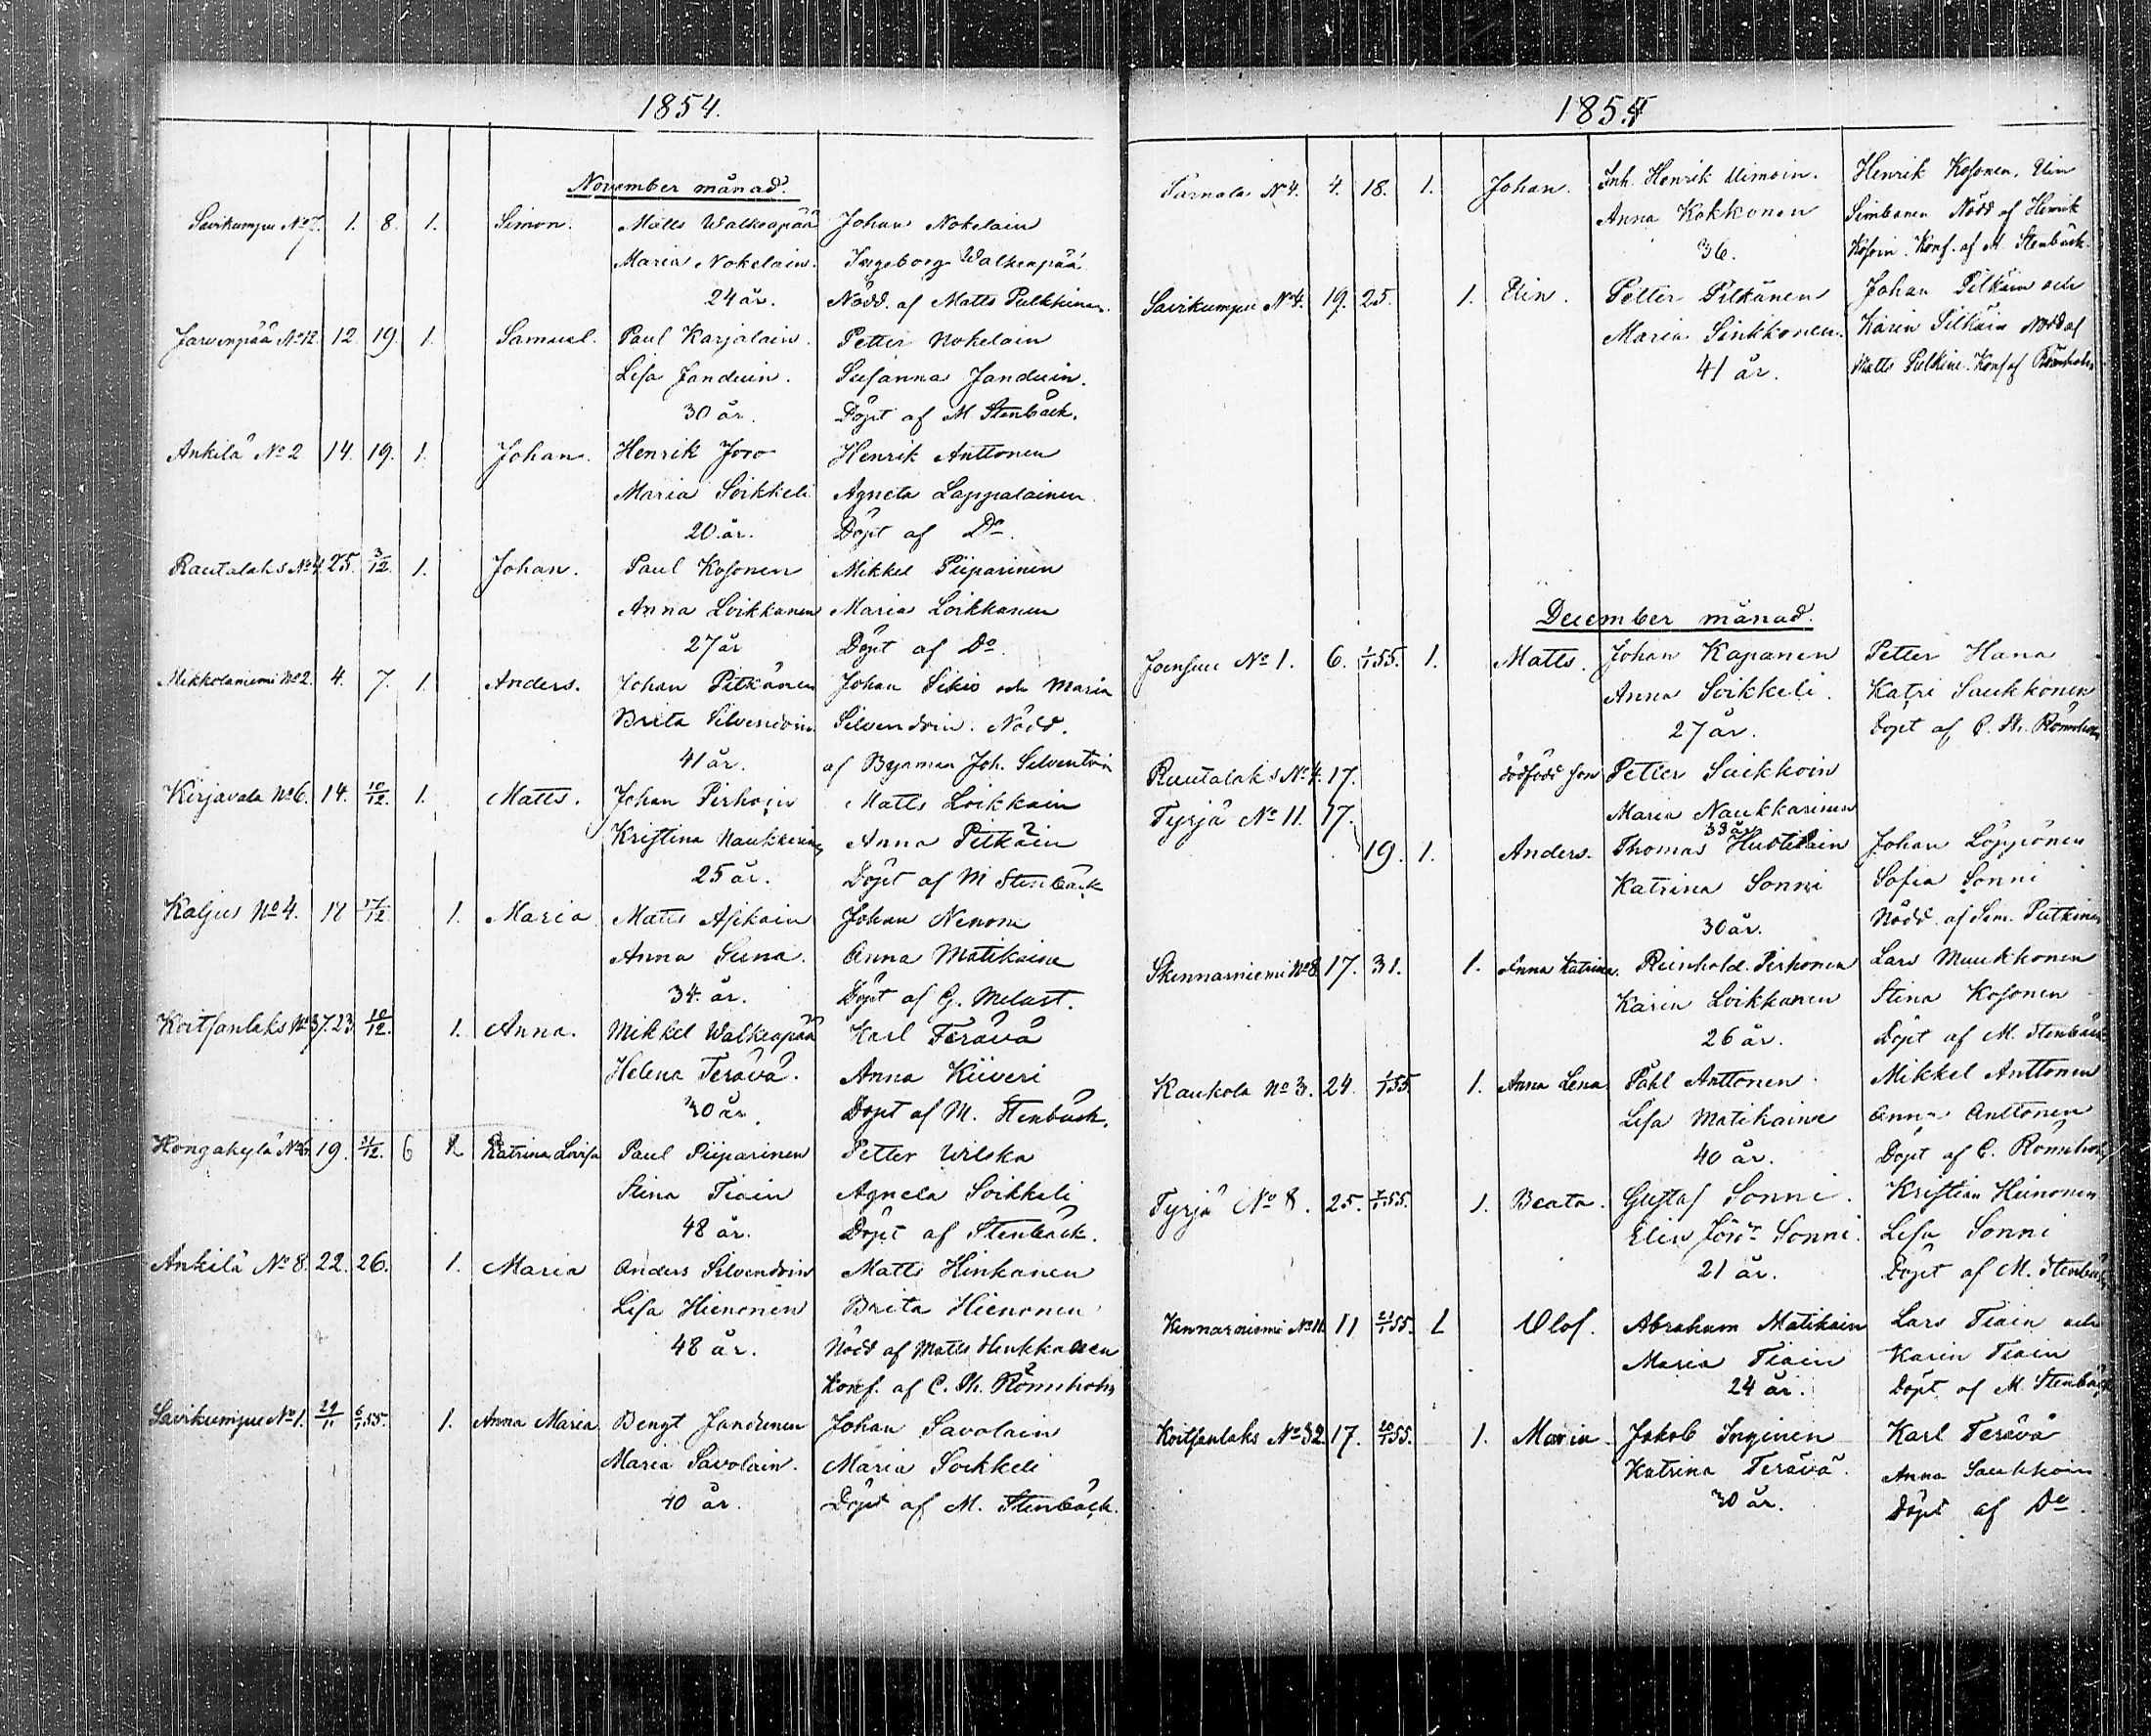 1854.
November månad.
Savikumpu No 7. 1. 8. 1. Simon. Matts Walkeapää Johan Nokelain
Maria Nokelain. Ingeborg Walkeapää
24 år. Nödd. af Matts Pulkkinen.
Jarvenpää No 12. 12 19. 1. Samuel. Paul Karjalain. Petter Nokelain
Lisa Janduin. Susanna Janduin.
30 år. Döpt af M Stenbäck.
Ankilä No 2 14. 19. 1. Johan. Henrik Joro Henrik Anttonen
Maria Soikkeli Agneta Lappalainen
20 år. Döpt af Do.
Rautalaks No 4 25. 3/12. 1. Johan. Paul Kosonen Mikkel Piiparinen
Anna Loikkanen Maria Loikkanen
27 år Döpt af Do.
Mikkolaniemi No 2. 4. 7. 1. Anders. Johan Pitkänen Johan Sikiö och Maria
Brita Silvendoin Silvendoin. Nödd.
41 år. af Byaman Joh. Silventoin
Kirjavala No 6. 14. 10/12. 1. Matts. Johan Pirhoin Matts Loikkain
Kristina Naukkarin Anna Pitkäin
25 år. Döpt af M Stenbäck
Kaljus No 4. 18 17/12. 1. Maria Matts Asikain Johan Nenone
Anna Suna. Anna Matikaine
34 år. Döpt af G. Melast.
Koitsanlaks No 37. 23 10/12. 1. Anna. Mikkel Walkeapää Karl Terävä
Helena Terävä. Anna Kiiveri
30 år. Döpt af M. Stenbäck.
Kongakylä No 6. 19. 31/12. 6 Katrina Lovisa Paul Piiparinen Petter Wilska
Stina Tiain Agneta Soikkeli
48 år. Döpt af Stenbäck.
Ankilä No 8. 22. 26. 1. Maria Anders Silvendoin Matts Hinkanen
Lisa Hienonen Brita Hienonen
48 år. Nödd af Matts Hinkkanen
Konf. af C. Th. Römnholm
Savikumpu No 1. 29/11 6/1 55. 1. Anna Maria Bengt Jandunen Johan Savolain
Maria Savolain. Maria Soikkeli
40 år. Döpt af M. Stenbäck.
1854
Särnala No 4. 4. 18. 1. Johan. Inh. Henrik Uimoin. Henrik Kosonen, Elin
Anna Kokkonen Simbanen Nödd af Henrik
36. Kosoin. Konf. af M. Stenbäck.
Savikumpu No 4. 19. 25. 1. Elin. Petter Pitkänen Johan Pitkäin och
Maria Sinkkonen. Karin Pitkäin Nödd af
41 år. Matts Pulkine. Konf af Römnholm
December månad.
Joensuu No 1. 6. 1/1 55. 1. Matts. Johan Kapanen Petter Hana
Anna Soikkeli. Katri Saukkonen
27 år. Döpt af C. Th. Römnholm
Rautalaks No 4. 17. dödfödd son Petter Suikkoin
Maria Naukkarinen
33 år
Tyrjä No 11. 17. 19. 1. Anders. Thomas Huotilain Johan Löppönen
Katrina Sonni Sofia Sonni
30 år. Nödd. af Sim. Putkinen
Skennarniemi No 8 17. 31. 1. Anna Katrina. Reinhold Pirhonen Lars Muukkonen
Karin Loikkanen Stina Kosonen
26 år. Döpt af M. Stenbäck
Kaukola No 3. 24. 1/1 55 1. Anna Lena Påhl Anttonen Mikkel Anttonen
Lisa Matikaine Anna Anttonen
40 år. Döpt af C. Römnholm
Tyrjä No 8. 25. 7/1 55. 1. Beata. Gustaf Sonni. Kristian Hienonen
Elin Sonni. Lisa Sonni
21 år. Döpt af M. Stenbäck
Kennarniemi No 11. 11 21/1 55. 1 Olof. Abraham Matikain Lars Tiain och
Maria Tiain Karin Tiain
24 år. Döpt af M. Stenbäck
Koitsanlaks No 32. 17. 20/1 55. 1. Maria Jakob Inginen Karl Terävä
Katrina Terävä. Anna Saukkoin
30 år. Döpt af Do.